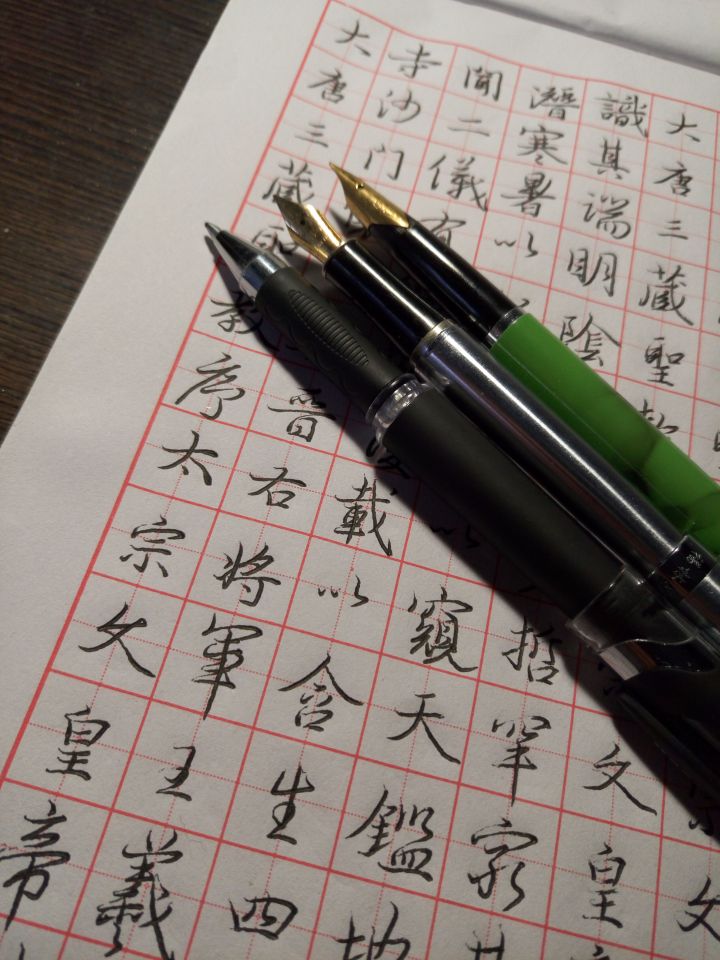 大唐三藏聖教序太宗文皇帝
寺沙門晉右將軍王羲
聞二儀有載以含生四
潛寒暑以以窺天鑑地
識其端明陰哲罕窮其
大唐三藏聖教文皇
文